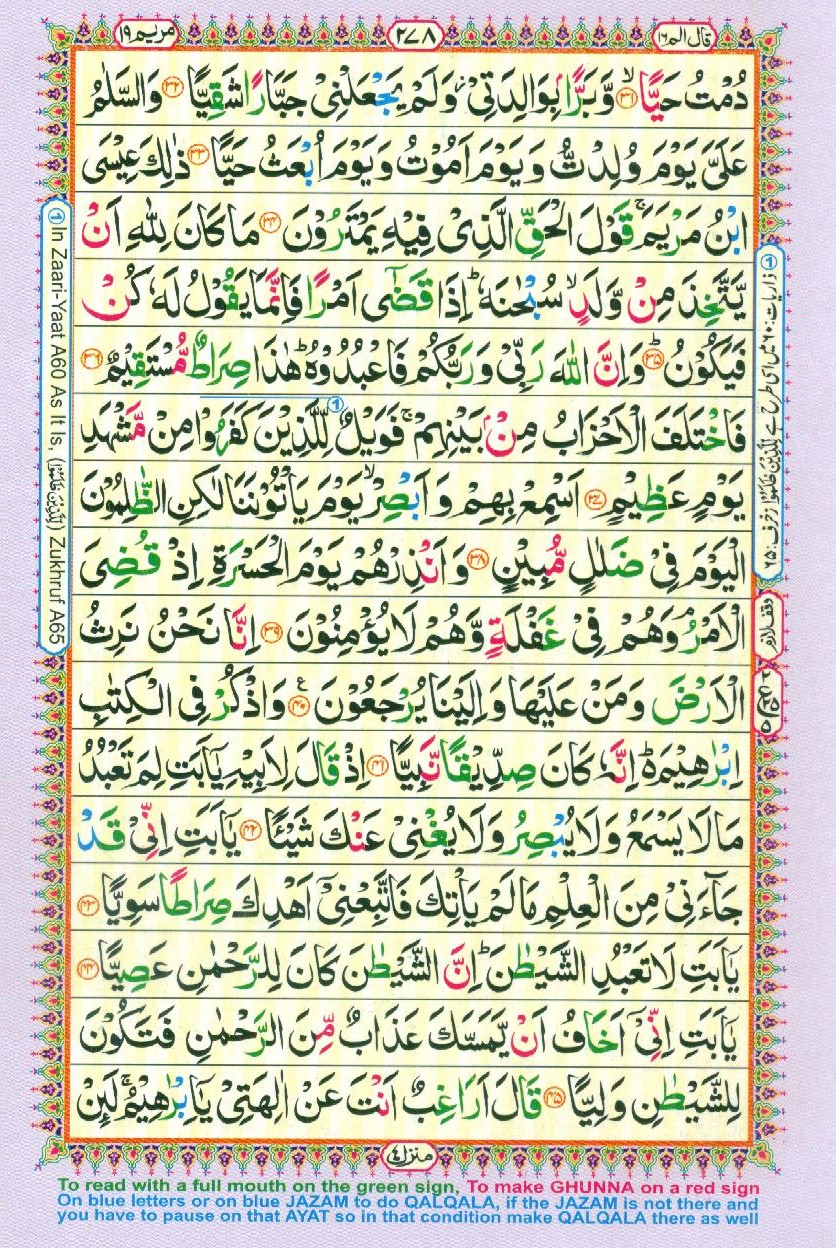 قال الم ١٦
٢٧٨
مريم ١٩
دُمْتُ حَيًّا ﴿٣١﴾ وَّبَرًّۢا بِوَالِدَتِیْ وَلَمْ یَجْعَلْنِیْ جَبَّارًا شَقِیًّا ﴿٣٢﴾ وَالسَّلٰمُ
عَلَیَّ یَوْمَ وُلِدْتُّ وَیَوْمَ اَمُوْتُ وَیَوْمَ اُبْعَثُ حَیًّا ﴿٣٣﴾ ذٰلِكَ عِیْسَی
ابْنُ مَرْیَمَ ۚ قَوْلَ الْحَقِّ الَّذِیْ فِیْهِ یَمْتَرُوْنَ ﴿٣٤﴾ مَا كَانَ لِلّٰهِ اَنْ
یَّتَّخِذَ مِنْ وَّلَدٍ ۙ سُبْحٰنَهٗ ؕ اِذَا قَضٰۤی اَمْرًا فَاِنَّمَا یَقُوْلُ لَهٗ كُنْ
فَیَكُوْنُ ﴿٣٥﴾ وَاِنَّ اللّٰهَ رَبِّیْ وَرَبُّكُمْ فَاعْبُدُوْهُ ؕ هٰذَا صِرَاطٌ مُّسْتَقِیْمٌ ﴿٣٦﴾
فَاخْتَلَفَ الْاَحْزَابُ مِنْۢ بَیْنِهِمْ ۚ فَوَیْلٌ لِّلَّذِیْنَ كَفَرُوْا مِنْ مَّشْهَدِ
یَوْمٍ عَظِیْمٍ ﴿٣٧﴾ اَسْمِعْ بِهِمْ وَاَبْصِرْ ۙ یَوْمَ یَاْتُوْنَنَا لٰكِنِ الظّٰلِمُوْنَ
الْیَوْمَ فِیْ ضَلٰلٍ مُّبِیْنٍ ﴿٣٨﴾ وَاَنْذِرْهُمْ یَوْمَ الْحَسْرَةِ اِذْ قُضِیَ
الْاَمْرُ ۘ وَهُمْ فِیْ غَفْلَةٍ وَّهُمْ لَا یُؤْمِنُوْنَ ﴿٣٩﴾ اِنَّا نَحْنُ نَرِثُ
الْاَرْضَ وَمَنْ عَلَیْهَا وَاِلَیْنَا یُرْجَعُوْنَ ﴿٤٠﴾ وَاذْكُرْ فِی الْكِتٰبِ
اِبْرٰهِیْمَ ؕ اِنَّهٗ كَانَ صِدِّیْقًا نَّبِیًّا ﴿٤١﴾ اِذْ قَالَ لِاَبِیْهِ یٰۤاَبَتِ لِمَ تَعْبُدُ
مَا لَا یَسْمَعُ وَلَا یُبْصِرُ وَلَا یُغْنِیْ عَنْكَ شَیْـًٔا ﴿٤٢﴾ یٰۤاَبَتِ اِنِّیْ قَدْ
جَآءَنِیْ مِنَ الْعِلْمِ مَا لَمْ یَاْتِكَ فَاتَّبِعْنِیْۤ اَهْدِكَ صِرَاطًا سَوِیًّا ﴿٤٣﴾
یٰۤاَبَتِ لَا تَعْبُدِ الشَّیْطٰنَ ؕ اِنَّ الشَّیْطٰنَ كَانَ لِلرَّحْمٰنِ عَصِیًّا ﴿٤٤﴾
یٰۤاَبَتِ اِنِّیْۤ اَخَافُ اَنْ یَّمَسَّكَ عَذَابٌ مِّنَ الرَّحْمٰنِ فَتَكُوْنَ
لِلشَّیْطٰنِ وَلِیًّا ﴿٤٥﴾ قَالَ اَرَاغِبٌ اَنْتَ عَنْ اٰلِهَتِیْ یٰۤاِبْرٰهِیْمُ ۚ لَىِٕنْ
① ذاریات: ٦٠ میں اسی طرح ہے لِّلَّذِیْنَ ظَلَمُوْا زخرف: ٦٥
وقف لازم
① In Zaari-Yaat A60 As It Is, (لِلَّذِیْنَ ظَلَمُوْا) Zukhruf A65
منزل ٤
To read with a full mouth on the green sign, To make GHUNNA on a red sign
On blue letters or on blue JAZAM to do QALQALA, if the JAZAM is not there and
you have to pause on that AYAT so in that condition make QALQALA there as well